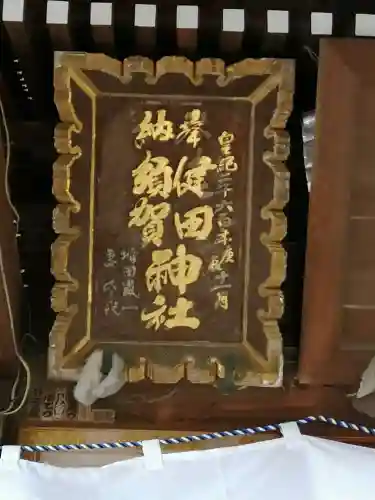 皇紀二千六百年庚辰十一月
奉
健田
納
須賀
神社